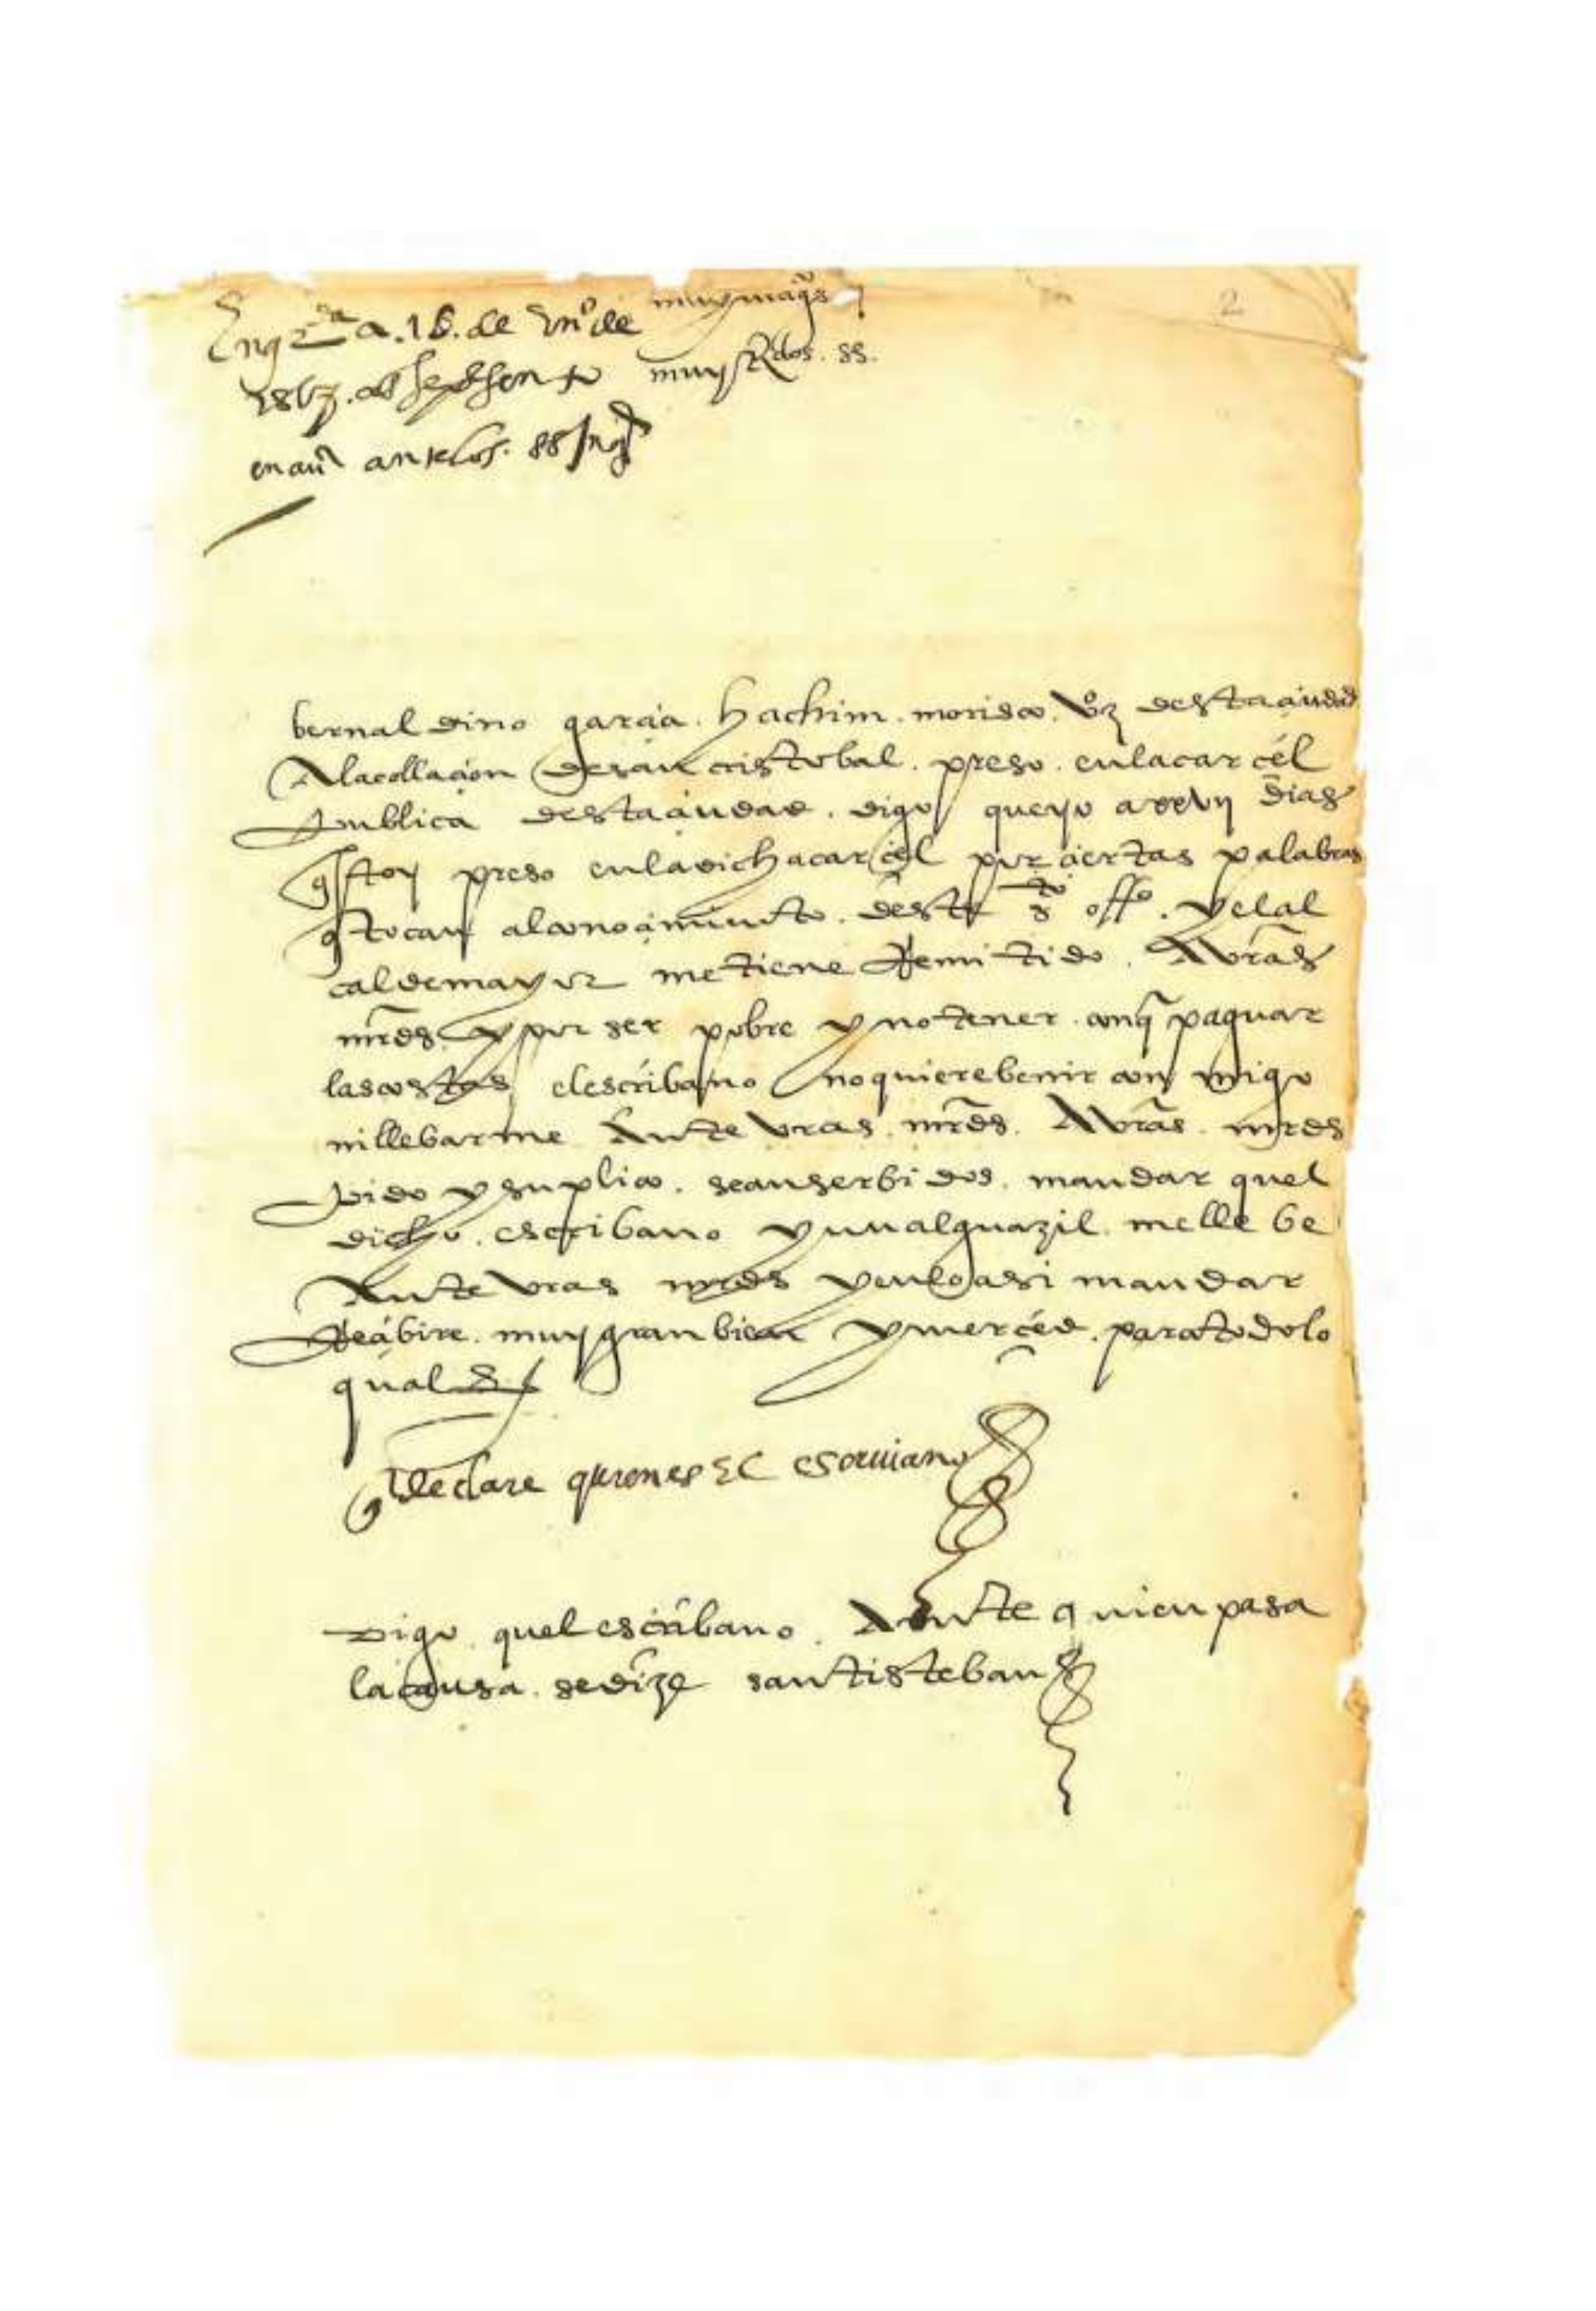 muy magcos y
En grda a. 15. de Eno de
muy Rdos. ss.
se presento
en auda ante los. ss Inqres
2
bernaldino garcia. hachim. morisco. vzo desta ciudad
A la collacion de san cristobal. preso. en la carcel
publica desta ciudad. digo que yo a xxvij dias
q estoy preso en la dicha carcel por ciertas palabras
q tocan al conocimiento. deste sto offo. y el al
calde mayor me tiene Remitido. A vras
mrds. y por ser pobre y no tener con q paguar
las costas el escribano no quiere benir con migo
ni llebarme Ante vras. mrds. A vras. mrds
pido y suplico. sean serbidos. mandar quel
dicho. escribano y un alguazil. me llebe
Ante vras mrds y en lo asi mandar
Recibire. muy gran bien y merced. para todo lo
qual
q declare quien es El escriuano
Digo. quel escribano. Ante quien pasa
la causa. se dize santisteban